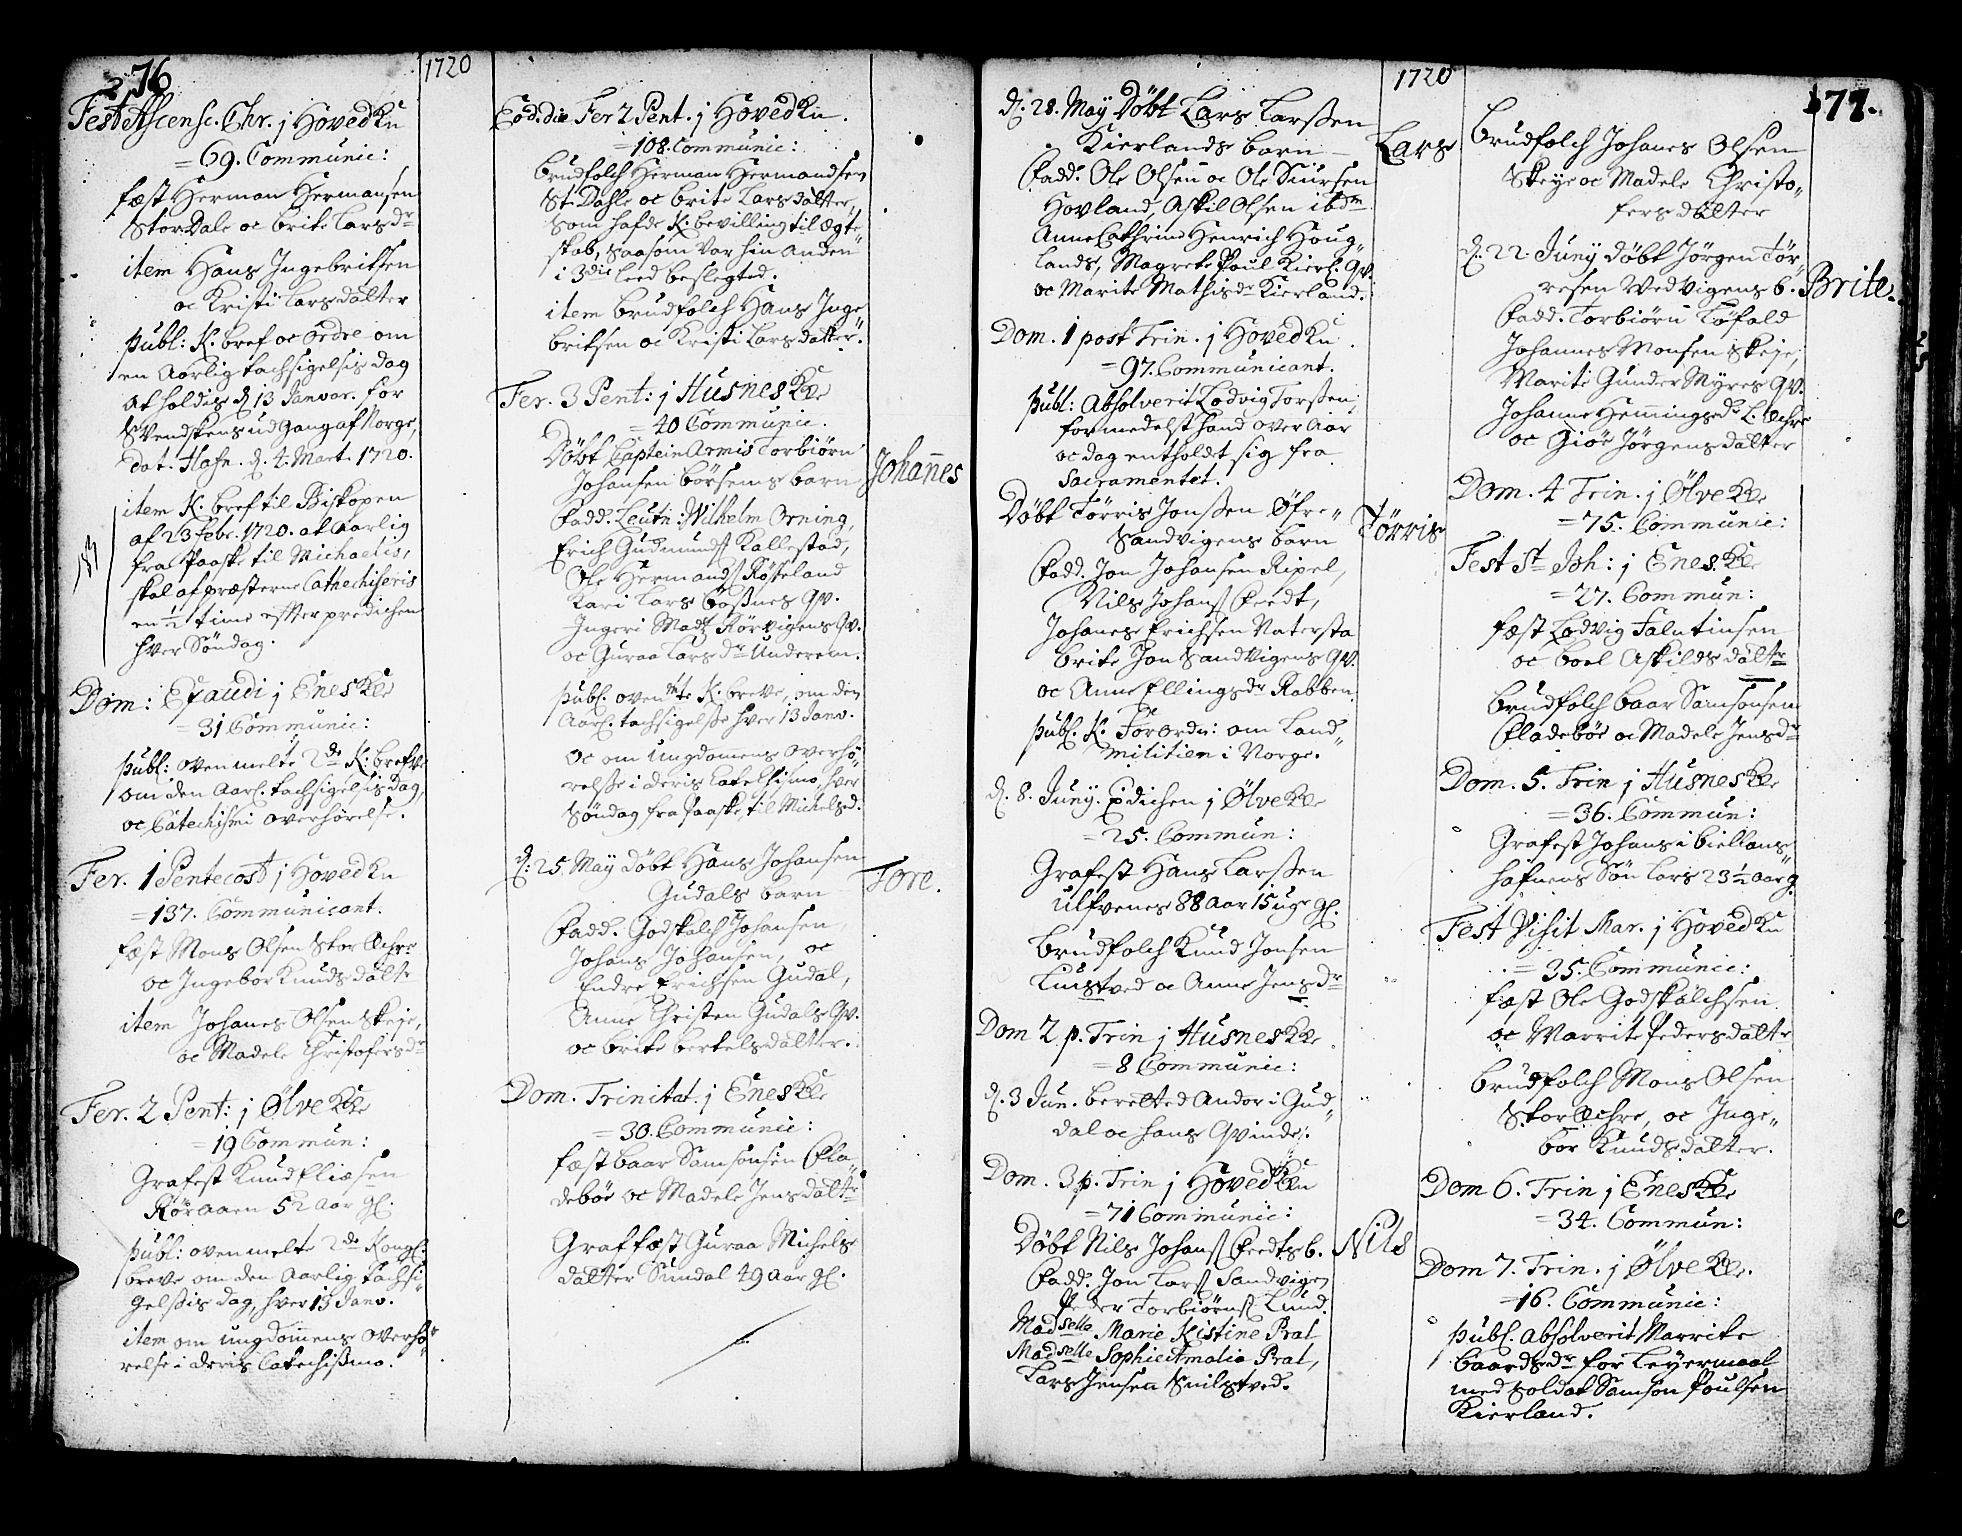 276
1720
Fest Ascensc. Chr. j Hoved Kn
= 69. Communic:
fæst Herman Hermansen
Stor Dale oc Brite Lars dr
item Hans Ingebritsen
oc Kristi Lars dåtter
Publ: K. bref oc Ordre om
en Aarlig tachsigelsis dag
at holdis d. 13 Janvar. for
Svendskens udgang af Norge,
dat. Hafn. d. 4. Mart. 1720.
item K. bref til Biskopen
af 23 Febr. 1720. at aarlig
fra Paaske til Michaelis,
skal af præsterne Cathechiseris
en ½ time effter predichen
hver Söndag.
Dom: Exaudi j Enes Kle
= 31 Communic:
Publ: ovenmelte 2de K: brefve
om den Aarl. tachsigelsis dag,
oc Catechismi overhörelse.
Fer. 1 Pentecost j Hoved Kn
= 137. Communicant.
fæst Mons Olsen Stor Ochre
oc Ingebor Knuds dåtr
item Johanes Olsen Skeje,
oc Madele Christofers dr
Fer. 2 Pent: j Ölve Kle
= 19 Commun:
Grafest Knud Eliæsen
Röraaen 52 aar gl.
Publ: ovenmelte 2de Kongl:
breve om den Aarlig tachsi-
gelssis dag, hver 13 Janv.
item om ungdommens overhö-
relse i deris Catechissmo.
Eod. die Fer 2 Pent. j Hoved Kn.
= 108. Communic:
Brudfolch Herman Hermandsen
St. Dahle oc Brite Lars dåtter,
Som hafde K: bevilling til ægte
skab, saasom var hin anden
i 3die leed beslegted.
item Brudfolch Hans Inge-
britsen oc Kristi Lars datter.
Fer. 3 Pent: j Husnes Kle
= 40 Communic.
Döbt Captein Armis Torbiörn
Johansen Börsems barn
Johañes
Fadd. Leutn: Wilhelm Orning,
Erich Gudmunds Kallestad,
Ole Hermands Röyseland
Kari Lars Gossnes Qv.
Ingeri Mads Rörvigens Qv.
oc Guraa Lars dr Underem.
Publ. ovenmte K. breve, om den
Aarl. tachsigelsse hver 13 Janv.
oc om ungdomens overhö-
relsse i deris Catechismo, hver
Söndag fra Paaske til Michelsd.
d: 25 May Döbt Hans Johansen
Gudals barn
Tore.
Fadd. Godskalch Johansen,
Johans Johansen, oc
Endre Erichsen Gudal,
Anne Christen Gudals Qv.
oc Brite Bertels dåtter.
Dom. Trinitat. j Enes Kle
= 30. Communic:
fæst Baar Samsonsen Fla-
deböe oc Madele Jens dåttr
Graffæst Guraa Michels
dåtter Sundal 49 aar gl.
1720
277.
d. 28. May Döbt Lars Larssen
Kierlands barn
Lars
Fadd. Ole Olsen oc Ole Siursen
Hovland, Askil Olsen ibdm
Anne Cathrine Henrich Houg-
lands, Magrete Poul Kierl. Qv.
oc Marite Mathis dr Kierland.
Dom. 1 post Trin. j Hoved Kn.
= 97. Communicant.
Publ: Absolverit Lodvig Torssen,
formedelst hand over aar
oc dag entholdt sig fra
Sacramentet.
Döbt Törris Jonssen Öfre-
Sandvigens barn
Törris
Fadd. Jon Johansen Ripel,
Nils Johans Feedt,
Johanes Erichsen Natersta
Brite Jon Sandvigens Qv.
oc Anne Ellings dr Rabben.
Publ. K. Forordn: om Land
militien i Norge.
d. 8. Juny. Predichen j Ölve Kle
= 25. Commun:
Grafest Hans Larssen
Ulfvenes 88 Aar 15 uge gl.
Brudfolch Knud Jonsen
Luistved oc Anne Jens dr
Dom 2 p. Trin j Husnes Kle
= 8 Communic:
d. 3 Jun. berettet Andor i Gud-
dal oc hans Qvinde.
Dom. 3 p. Trin j Hoved Kn
= 71 Communic:
Döbt Nils Johans Feedts b.
Nils
Fadd. Jon Lars Sandvigen
Peder Torbiörns Lund.
Madselle Marie Kistine Prat
Madselle Sophie Amalia Prat,
Lars Jensen Snilstved.
Brudfolch Johanes Olsen
Skeye oc Madele Christo-
fers dåtter
d. 22 Juny Döbt Jörgen Tör-
resen Wedvigens b.
Brite.
Fadd. Torbiörn Tofald
Johannes Monsen Skeje,
Marite Gunder Myres Qv.
Johanne Hemmings dr L. Ochre
oc Giöe Jörgens datter
Dom. 4 Trin. j Ölve Kle
= 75. Communic:
Fest St Joh: j Enes Kle
= 27. Commun:
fæst Lodvig Falntinsen
oc Boel Askilds dåttr
Brudfolch Baar Samsonsen
Fladeböe oc Madele Jens dr
Dom. 5. Trin j Husnes Kle
= 36. Commun:
Grafest Johans i Biellans
hafnens Sön Lars 23½ aar g.
Fest Visit Mar. j Hoved Kn
= 35. Communic:
fæst Ole Godskalchsen
oc Marrite Peders dåtr
Brudfolch Mons Olsen
Stor Ochre, oc Inge-
bor Knuds dåtter.
Dom 6. Trin j Enes Kle
= 34. Commun:
Dom 7. Trin. j Ölve Kle.
= 16. Communic:
Publ. Absolverit Marrite
Baards dr for Leyermaal
med Soldat Samson Poulsen
Kierland.